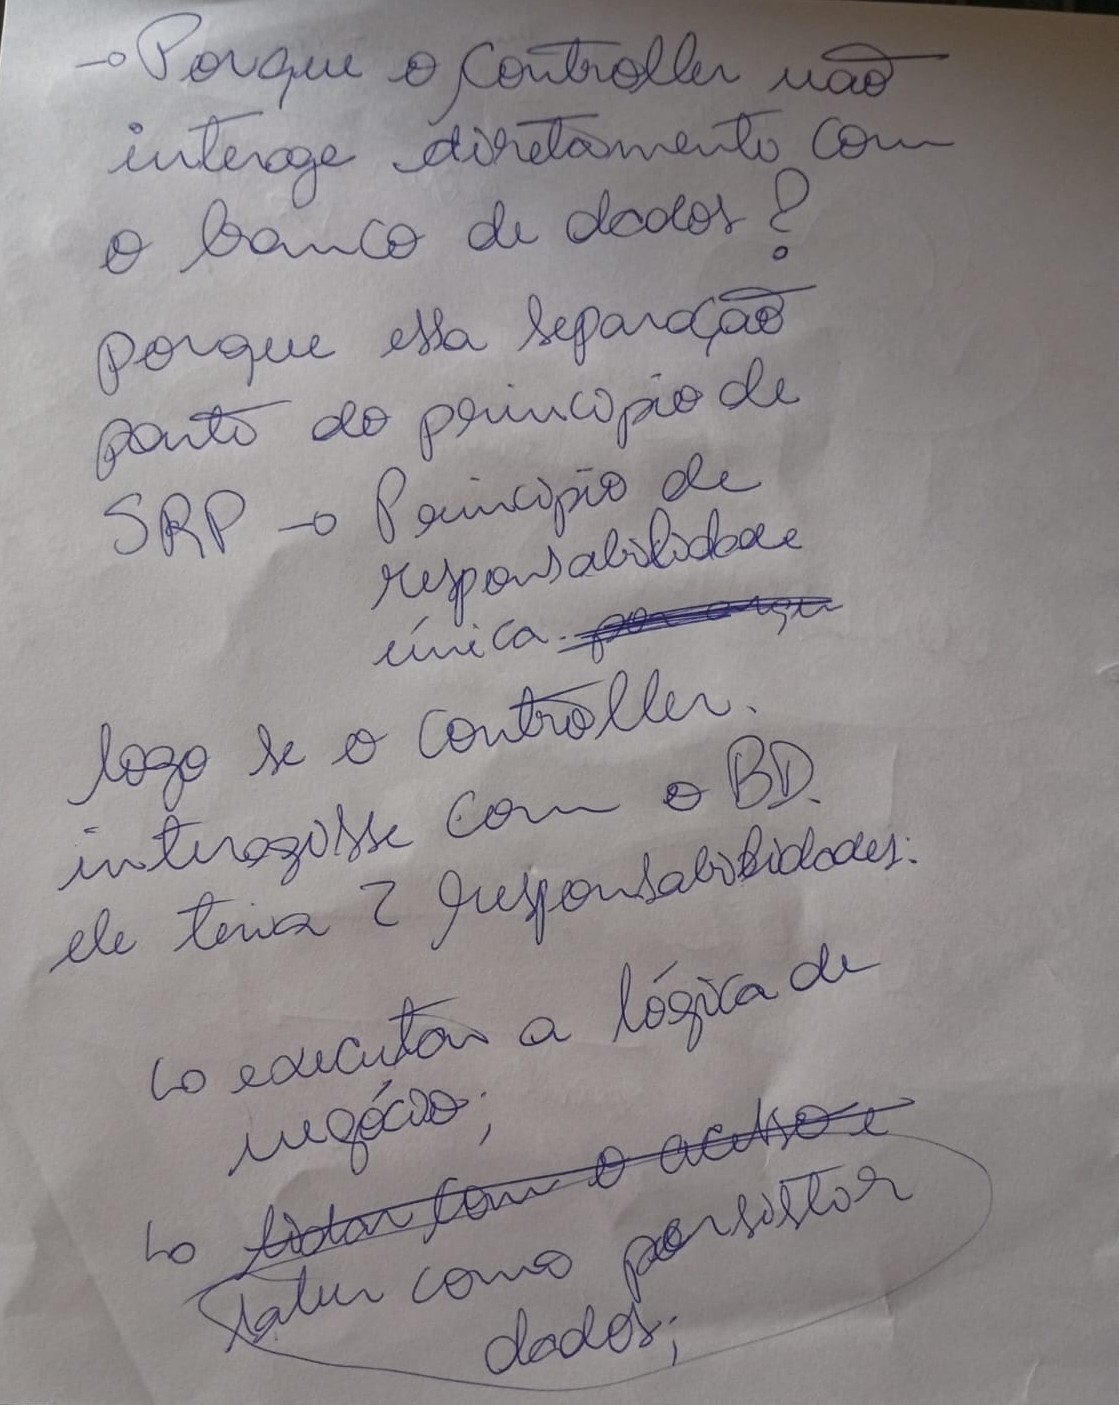 → Porque o controller não
interage diretamente com
o banco de dados?
porque essa separação
parte do principio de
SRP → Principio de
responsabilidade
única.
logo se o controller.
interagisse com o BD.
ele teria 2 responsabilidades:
↳ executar a lógica de
negócio;
↳ lidar com o acesso e
saber como persistir
dados;